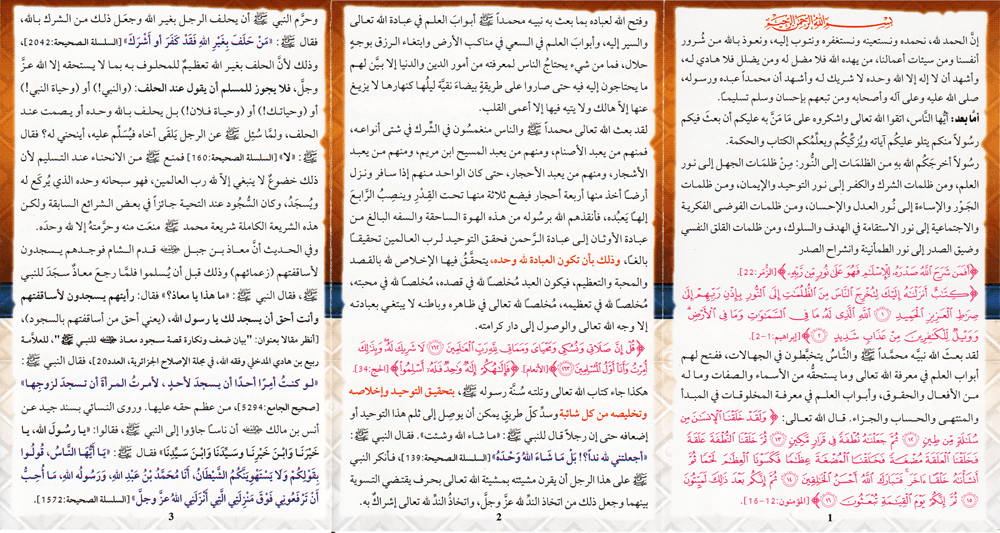 بِسْمِ اللهِ الرَّحْمٰنِ الرَّحِيْمِ
إنَّ الحمد لله، نحمده ونستعينه ونستغفره ونتوب إليه، ونعوذ بالله من شُرور
أنفسنا ومن سيئات أعمالنا، من يهده الله فلا مضل له ومن يضلل فلا هادي له،
وأشهد أن لا إله إلا الله وحده لا شريك له وأشهد أن محمداً عبده ورسوله،
صلى الله عليه وعلى آله وأصحابه ومن تبعهم بإحسان وسلم تسليمًا.
أمّا بعد: أيُّها النَّاس، اتقوا الله تعالى واشكروه على مَا مَنَّ به عليكم أن بعث فيكم
رسولاً منكم يتلو عليكم آياته ويُزكِّيكم ويعلِّمكم الكتاب والحكمة.
رسولاً أخرجَكُم الله بهِ من الظلمَات إلى النُّور: مِنْ ظلمَات الجهل إلى نور
العلم، ومن ظلمات الشرك والكفر إلى نور التوحيد والإيمان، ومن ظلمات
الجَوْر والإساءة إلى نور العدل والإحسان، ومن ظلمات الفوضى الفكرية
والاجتماعية إلى نور الاستقامة في الهدف والسلوك، ومن ظلمات القلق النفسي
وضيق الصدر إلى نور الطمأنينة وانشراح الصدر
﴿أَفَمَن شَرَحَ اللَّهُ صَدْرَهُ لِلْإِسْلَامِ فَهُوَ عَلَى نُورٍ مِّن رَّبِّهِ﴾ [الزُّمَر:22].
﴿كِتَابٌ أَنزَلْنَاهُ إِلَيْكَ لِتُخْرِجَ النَّاسَ مِنَ الظُّلُمَاتِ إِلَى النُّورِ بِإِذْنِ رَبِّهِمْ إِلَى
صِرَاطِ الْعَزِيزِ الْحَمِيدِ ۝١ اللَّهِ الَّذِي لَهُ مَا فِي السَّمَاوَاتِ وَمَا فِي الْأَرْضِ
وَوَيْلٌ لِّلْكَافِرِينَ مِنْ عَذَابٍ شَدِيدٍ﴾ [إبراهيم:1-2].
لقد بعث الله نبيَّه محمَّداً ﷺ والنَّاسُ يتخبَّطون في الجهالات، ففتح لهم
أبواب العلم في معرفة الله تعالى وما يستحقُّه من الأسماء والصفات وما له
من الأفعال والحقوق، وأبوابَ العلم في معرفة المخلوقات في المبدأ
والمنتهى والحساب والجزاء. قال الله تعالى: ﴿وَلَقَدْ خَلَقْنَا الْإِنسَانَ مِن
سُلَالَةٍ مِّن طِينٍ ۝١٢ ثُمَّ جَعَلْنَاهُ نُطْفَةً فِي قَرَارٍ مَّكِينٍ ۝١٣ ثُمَّ خَلَقْنَا النُّطْفَةَ عَلَقَةً
فَخَلَقْنَا الْعَلَقَةَ مُضْغَةً فَخَلَقْنَا الْمُضْغَةَ عِظَامًا فَكَسَوْنَا الْعِظَامَ لَحْمًا ثُمَّ
أَنشَأْنَاهُ خَلْقًا آخَرَ فَتَبَارَكَ اللَّهُ أَحْسَنُ الْخَالِقِينَ ۝١٤ ثُمَّ إِنَّكُم بَعْدَ ذَلِكَ لَمَيِّتُونَ
۝١٥ ثُمَّ إِنَّكُمْ يَوْمَ الْقِيَامَةِ تُبْعَثُونَ ۝١٦﴾ [المؤمنون:12-16].
1
وفتح الله لعباده بما بعث به نبيه محمداً ﷺ أبوابَ العلم في عبادة الله تعالى
والسير إليه، وأبوابَ العلم في السعي في مناكب الأرض وابتغاء الرزق بوجهٍ
حلال، فما من شيء يحتاجُ الناس لمعرفته من أمور الدين والدنيا إلا بيَّن لهم
ما يحتاجون إليه فيه حتى صاروا على طريقةٍ بيضاءَ نقيَّة ليلُها كنهارها لا يزيغ
عنها إلاّ هالك ولا يتيه فيها إلا أعمى القلب.
لقد بعث الله تعالى محمداً ﷺ والناس منغمسُون في الشِّرك في شتى أنواعـه،
فمنهم من يعبد الأصنام، ومنهم من يعبد المسيح ابن مريم، ومنهم من يعبد
الأشجار، ومنهم من يعبد الأحجار، حتى كان الواحد منهم إذا سافر ونزل
أرضاً أخذ منها أربعة أحجار فيضع ثلاثة منها تحت القِدْرِ وينصِبُ الرَّابعَ
إلهًا يَعْبُده، فأنقذهم الله برسُوله من هذه الهوة الساحقة والسفه البالغ من
عبادة الأوثان إلى عبادة الرَّحمن فحقق التوحيد لرب العالمين تحقيقًا
بالغًا، وذلك بأن تكون العبادة لله وحده، يتحقَّقُ فيها الإخلاص لله بالقصد
والمحبة والتعظيم، فيكون العبدُ مُخلصًا لله في قصده، مُخلصًا لله في محبته،
مُخلصًا لله في تعظيمه، مُخلصًا لله تعالى في ظاهره وباطنه لا يبتغي بعبادته
إلا وجه الله تعالى والوصول إلى دار كرامته.
﴿قُلْ إِنَّ صَلَاتِي وَنُسُكِي وَمَحْيَايَ وَمَمَاتِي لِلَّهِ رَبِّ الْعَالَمِينَ ۝١٦٢ لَا شَرِيكَ لَهُ وَبِذَلِكَ
أُمِرْتُ وَأَنَا أَوَّلُ الْمُسْلِمِينَ ۝١٦٣﴾ [الأنعام]. ﴿فَإِلَهُكُمْ إِلَهٌ وَاحِدٌ فَلَهُ أَسْلِمُوا﴾ [الحج:34].
هكذا جاء كتاب الله تعالى وتلته سُنَّة رسوله ﷺ، بتحقيق التوحيد وإخلاصه
وتخليصه من كل شائبة وسدِّ كلِّ طريقٍ يمكن أن يوصِل إلى ثلم هذا التوحيد أو
إضعافه حتى إن رجلاً قال للنبي ﷺ: «ما شاء الله وشئت». فقال النبي ﷺ:
«أجعلتني لله ندّاً؟! بَلْ مَا شَاءَ اللهُ وَحْدَهُ» [السلسلة الصحيحة:139]، فأنكر النبي
ﷺ على هذا الرجل أن يقرن مشيئته بمشيئة الله تعالى بحرف يقتضي التسوية
بينهما وجعل ذلك من اتخاذ الندِّ لله عزَّ وجلَّ، واتخاذُ الندِّ لله تعالى إشراكٌ به.
2
وحرَّم النبي ﷺ أن يحلف الرجل بغير الله وجعَل ذلك من الشرك بالله،
فقال ﷺ: «مَنْ حَلَفَ بِغَيْرِ اللهِ فَقَدْ كَفَرَ أَو أَشْرَكَ» [السلسلة الصحيحة:2042]،
وذلك لأنَّ الحلف بغير الله تعظيمٌ للمحلوف به بما لا يستحقه إلا الله عزَّ
وجلَّ، فلا يجوز للمسلم أن يقول عند الحلف: (والنبي!) أو (وحياة النبي!)
أو (وحياتك!) أو (وحياة فلان!) بل يحلف بالله وحده أو يصمت عند
الحلف، ولمَّا سُئِل ﷺ عن الرجل يَلْقَى أخاه فيُسَلِّم عليه، أينحني له؟ فقال
ﷺ: «لا» [السلسلة الصحيحة:160] فمنع ﷺ من الانحناء عند التسليم لأن
ذلك خضوعٌ لا ينبغي إلاّ لله رب العالمين، فهو سبحانه وحده الذي يُركَع له
ويُسجَدُ، وكان السُّجود عند التحية جـائزاً في بعض الشرائع السابقة ولكن
هذه الشريعة الكاملة شريعة محمد ﷺ منعَت منه وحرَّمتهُ إلا لله وحدَه.
وفي الحديث أنَّ معـاذ بن جبـل قَدم الشام فوجدهم يسجدون
لأساقفتهم (زعمائهم) وذلك قبل أن يُسلموا فلمَّا رجعَ معاذٌ سجَدَ للنبي
ﷺ، فقال النبي ﷺ: «ما هذا يا معاذ؟» فقال: رأيتهم يسجدون لأساقفتهم
وأنت أحق أن يسجد لك يا رسول الله، (يعني أحق من أساقفتهم بالسجود)،
[انظر مقالا بعنوان: "بيان ضعف ونكارة قصة سجود معاذ للنبي ﷺ"، للعلاَّمة
ربيع بن هادي المدخلي وفقه الله، في مجلة الإصلاح الجزائرية، العدد20]، فقال النبي ﷺ:
«لـو كنتُ آمِرًا أحدًا أن يسجدَ لأحدٍ، لأمرتُ المرأةَ أن تسجدَ لزوجها»
[صحيح الجامع:5294]، من عظم حقه عليها. وروى النسائي بسند جيد عن
أنس بن مالك أن ناساً جاؤوا إلى النبي ﷺ، فقالوا: «يا رسُولَ الله، يا
خَيْرَنَا وَابْنَ خَيْرِنَا وسَيِّدَنَا وَابْنَ سَيِّدِنَا» فقال ﷺ: «يَا أَيُّهَا النَّاسُ، قُولُوا
بِقَوْلِكُمْ وَلَا يَسْتَهْوِيَنَّكُمُ الشَّيْطَانُ، أَنَا مُحَمَّدُ بْنُ عَبْدِ اللهِ، وَرَسُولُه اللهِ، مَا أُحِبُّ
أَنْ تَرْفَعُونِي فَوْقَ مَنْزِلَتِي الَّتِي أَنْزَلَنِي اللهُ عَزَّ وجلَّ» [السلسلة الصحيحة:1572].
3